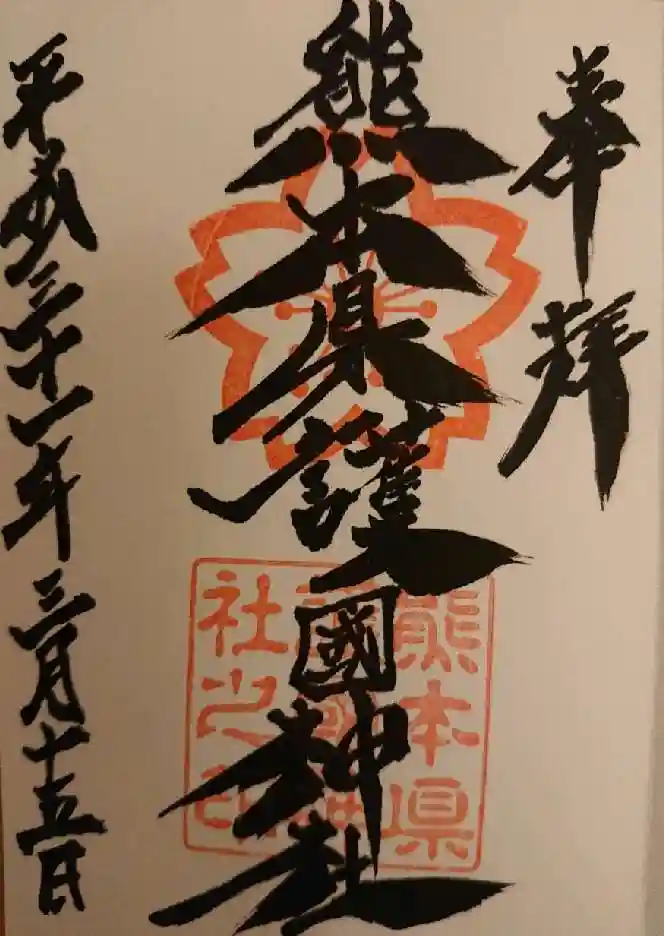 奉拝
熊本県護國神社
平成三十一年三月十五日
熊本県
護國神
社之印